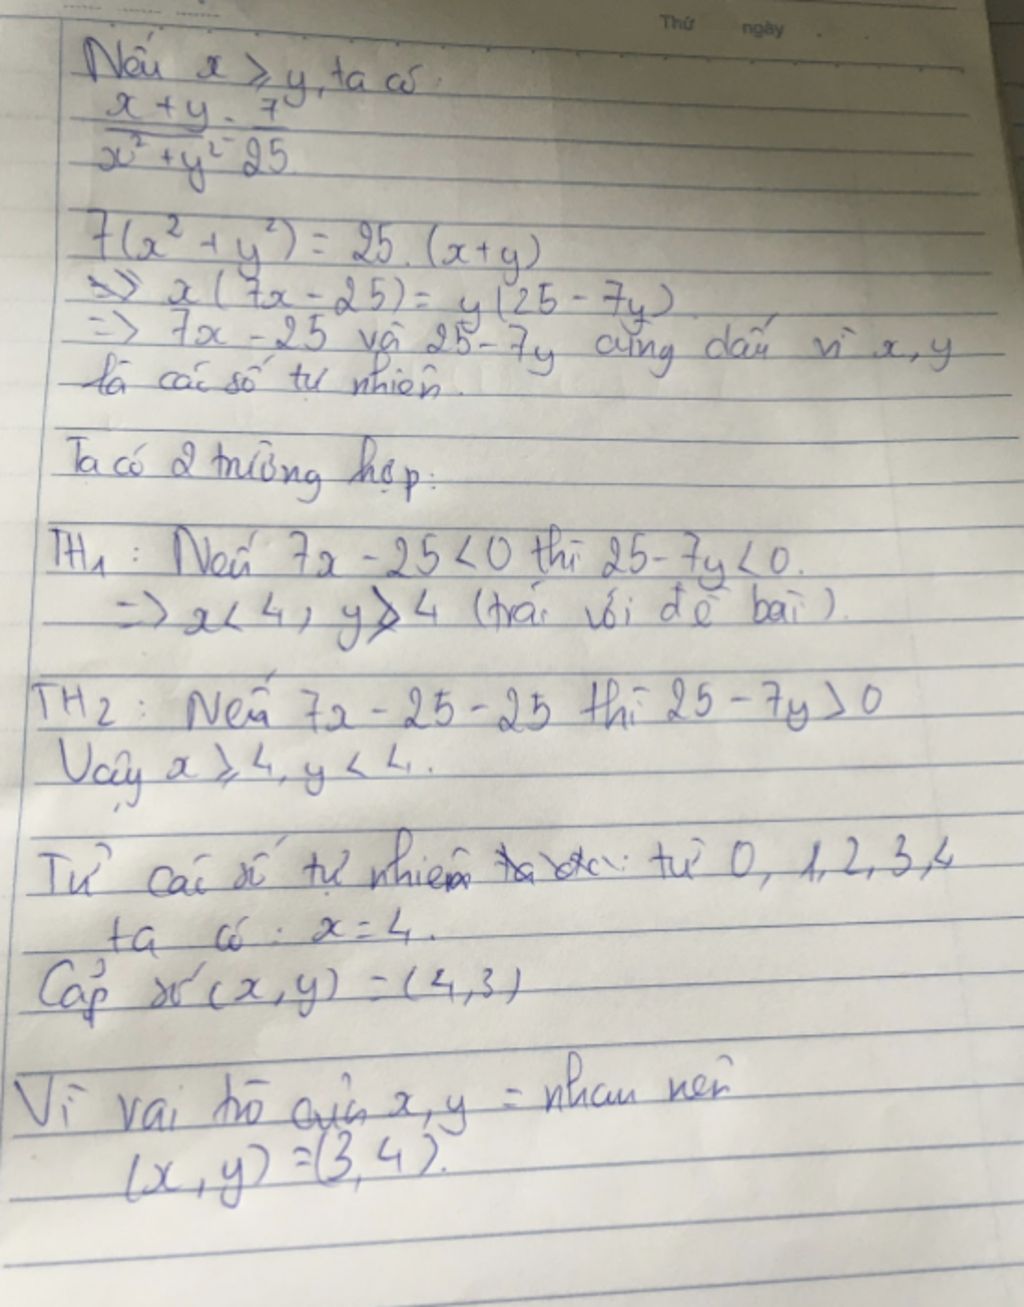 Thứ ngày
Nếu x ⩾ y, ta có:
x + y = 7
x² + y² 25
7(x² + y²) = 25. (x+y)
=> x(7x - 25) = y(25 - 7y)
=> 7x - 25 và 25 - 7y cùng dấu vì x, y
là các số tự nhiên.
Ta có 2 trường hợp:
TH1: Nếu 7x - 25 < 0 thì 25 - 7y < 0.
=> x < 4, y ⩾ 4 (trái với đề bài).
TH2: Nếu 7x - 25 - 25 thì 25 - 7y > 0
Vậy x ⩾ 4, y < 4.
Từ các số tự nhiên từ 0, 1, 2, 3, 4
ta có: x = 4.
Cặp số (x, y) = (4,3)
Vì vai trò của x, y = nhau nên
(x, y) = (3, 4).